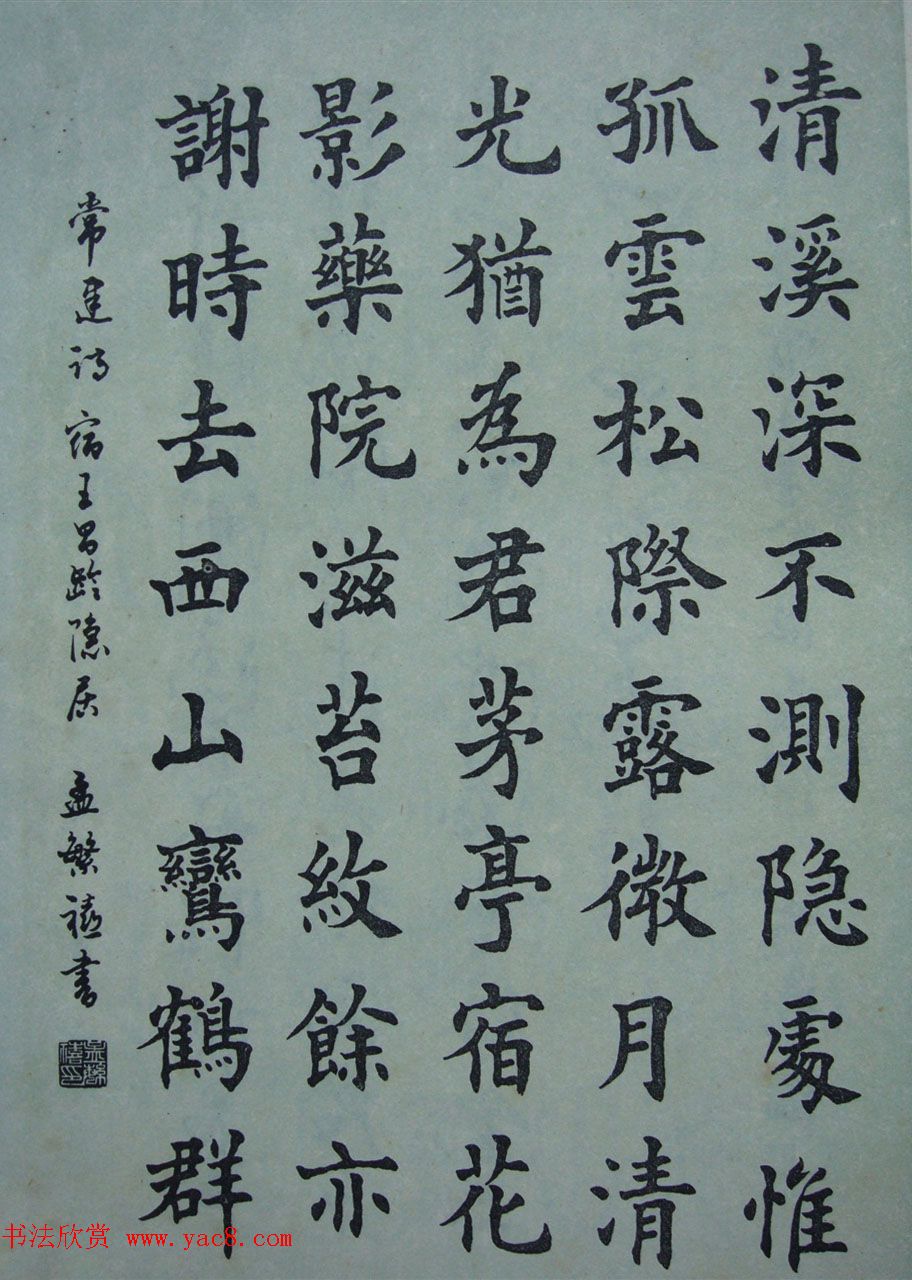 清溪深不測隐處惟
孤雲松際露微月清
光猶為君茅亭宿花
影藥院滋苔紋餘亦
謝時去西山鸞鶴群
常建诗宿王昌龄隐居 孟繁禧书
书法欣赏 www.yac8.com